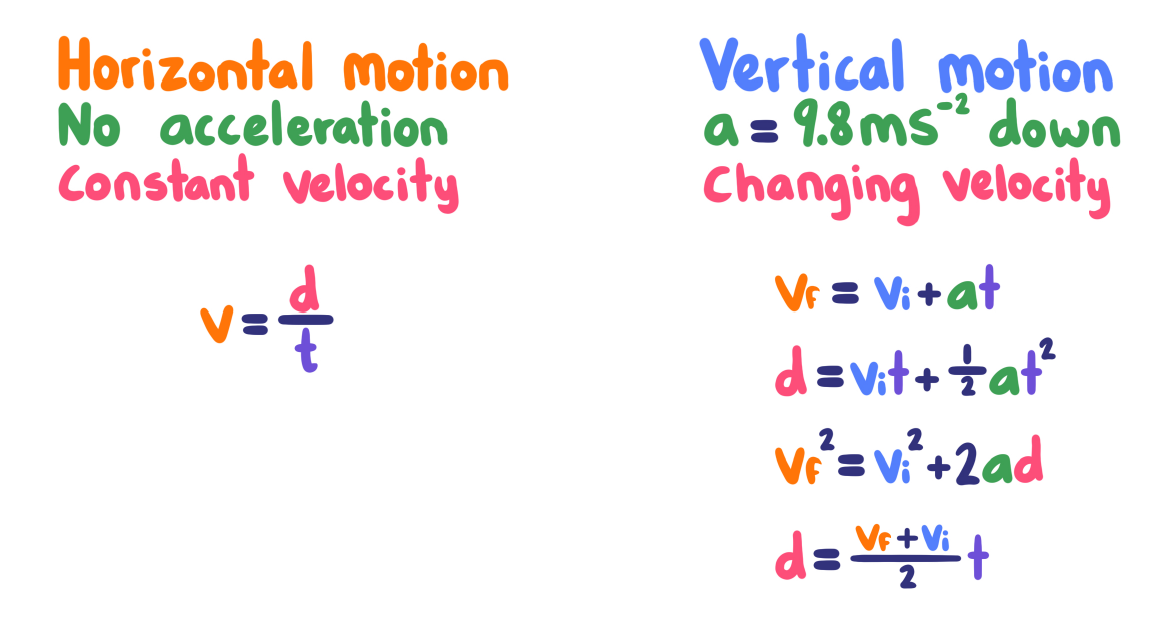 Horizontal motion
No acceleration
Constant velocity
v = d/t
Vertical motion
a = 9.8ms⁻² down
Changing velocity
vf = vi + at
d = vit + ½at²
vf² = vi² + 2ad
d = (vf + vi)/2 t